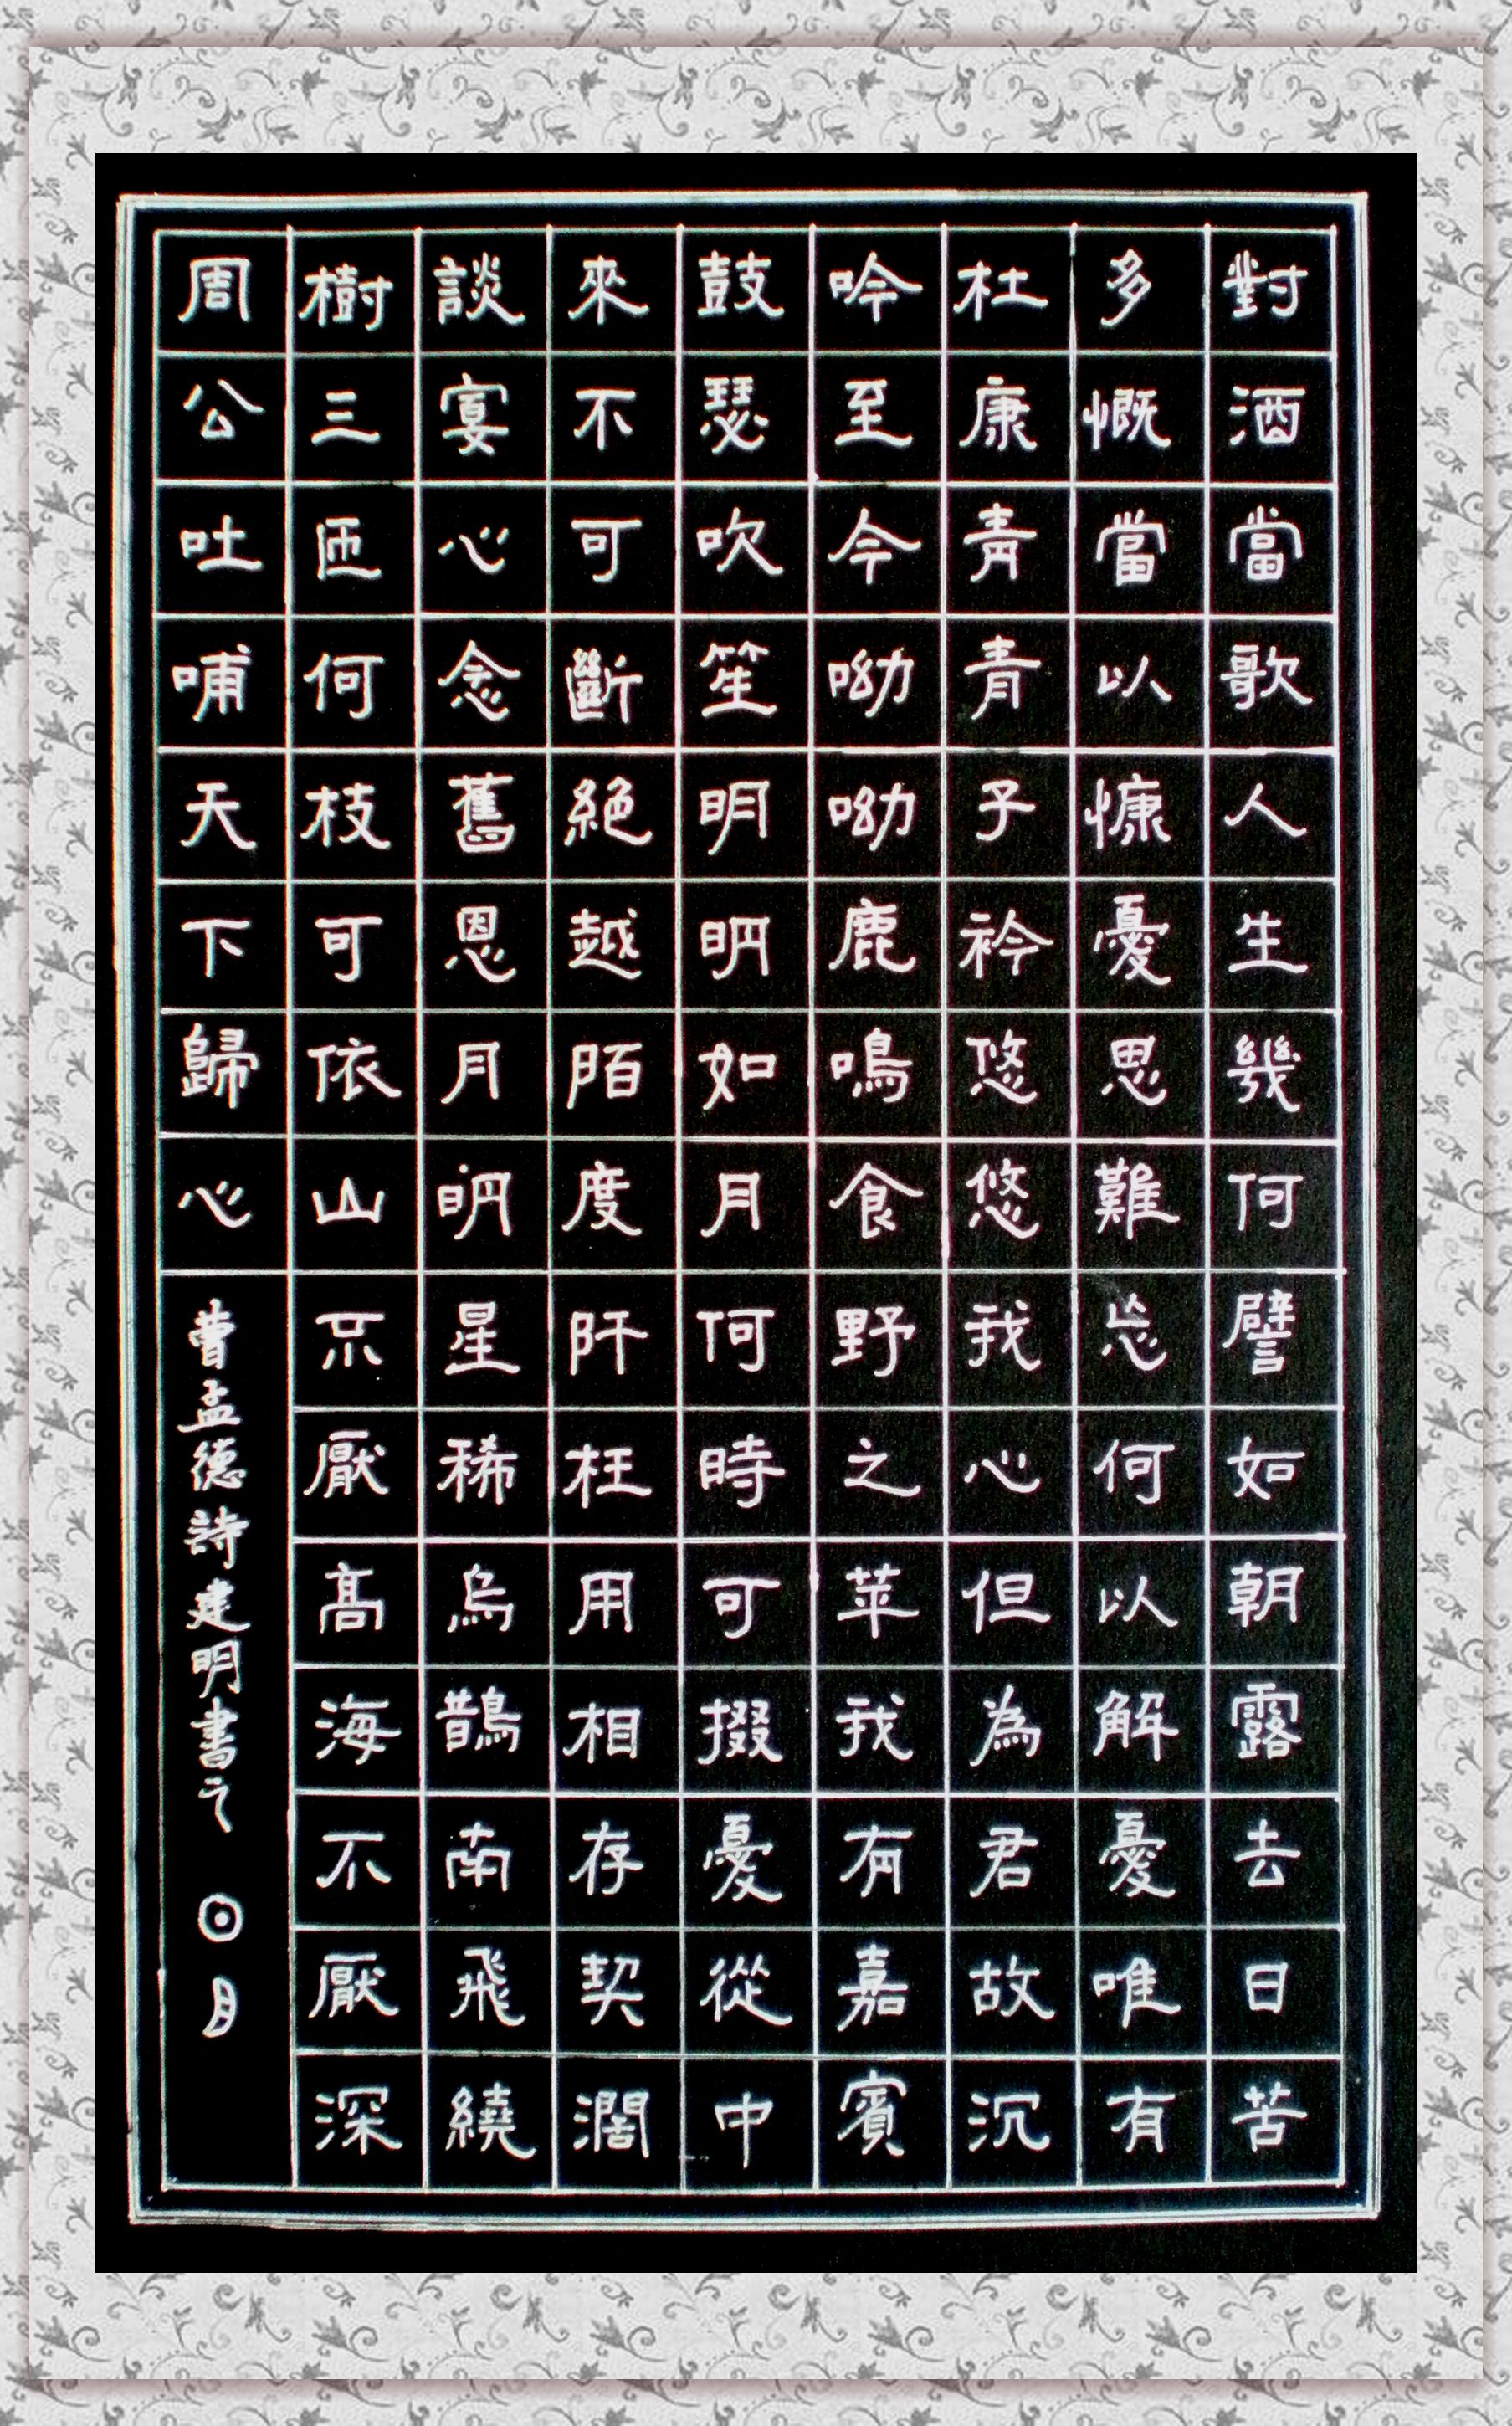 對酒當歌人生幾何譬如朝露去日苦
多慨當以慷憂思難忘何以解憂唯有
杜康青青子衿悠悠我心但為君故沉
吟至今呦呦鹿鳴食野之苹我有嘉賓
鼓瑟吹笙明明如月何時可掇憂從中
來不可斷絕越陌度阡枉用相存契濶
談宴心念舊恩月明星稀烏鵲南飛繞
樹三匝何枝可依山不厭髙海不厭深
周公吐哺天下歸心
曹孟德詩建明書之 ⊙月